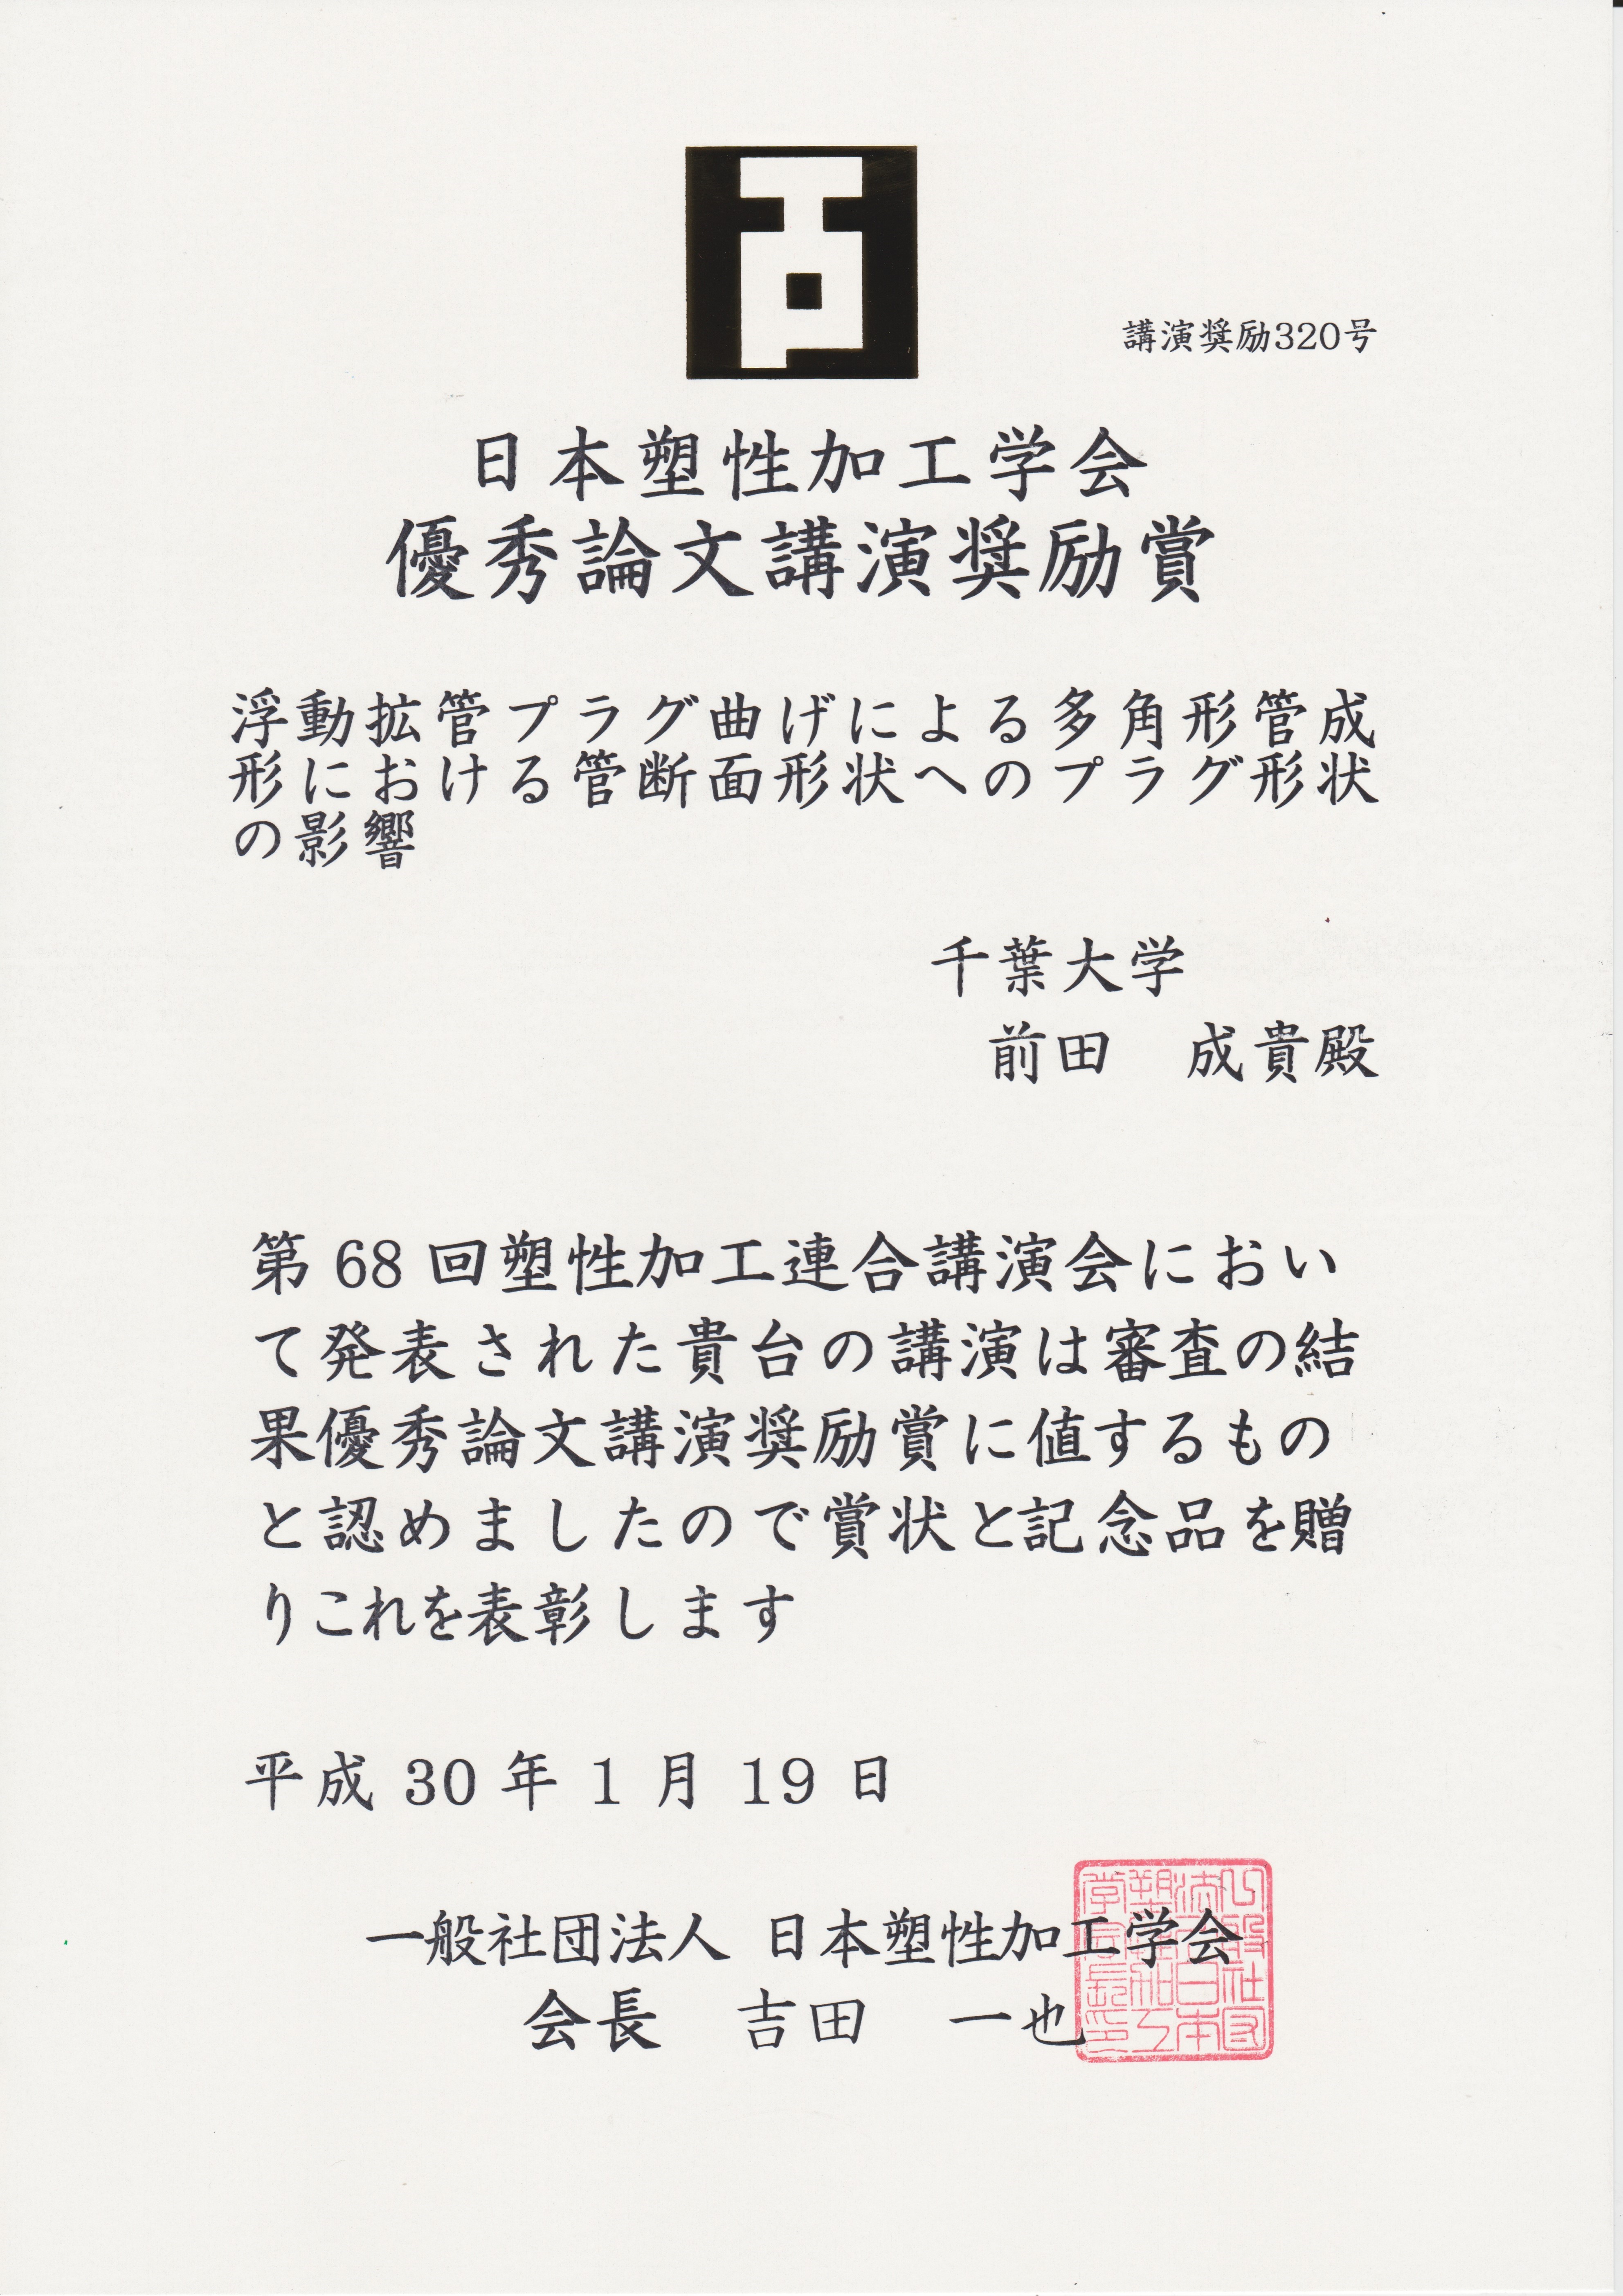 講演奨励320号
日本塑性加工学会
優秀論文講演奨励賞
浮動拡管プラグ曲げによる多角形管成
形における管断面形状へのプラグ形状
の影響
千葉大学
前田 成貴殿
第 68 回塑性加工連合講演会におい
て発表された貴台の講演は審査の結
果優秀論文講演奨励賞に値するもの
と認めましたので賞状と記念品を贈
りこれを表彰します
平成 30 年 1 月 19 日
一般社団法人 日本塑性加工学会
会長 吉田 一也